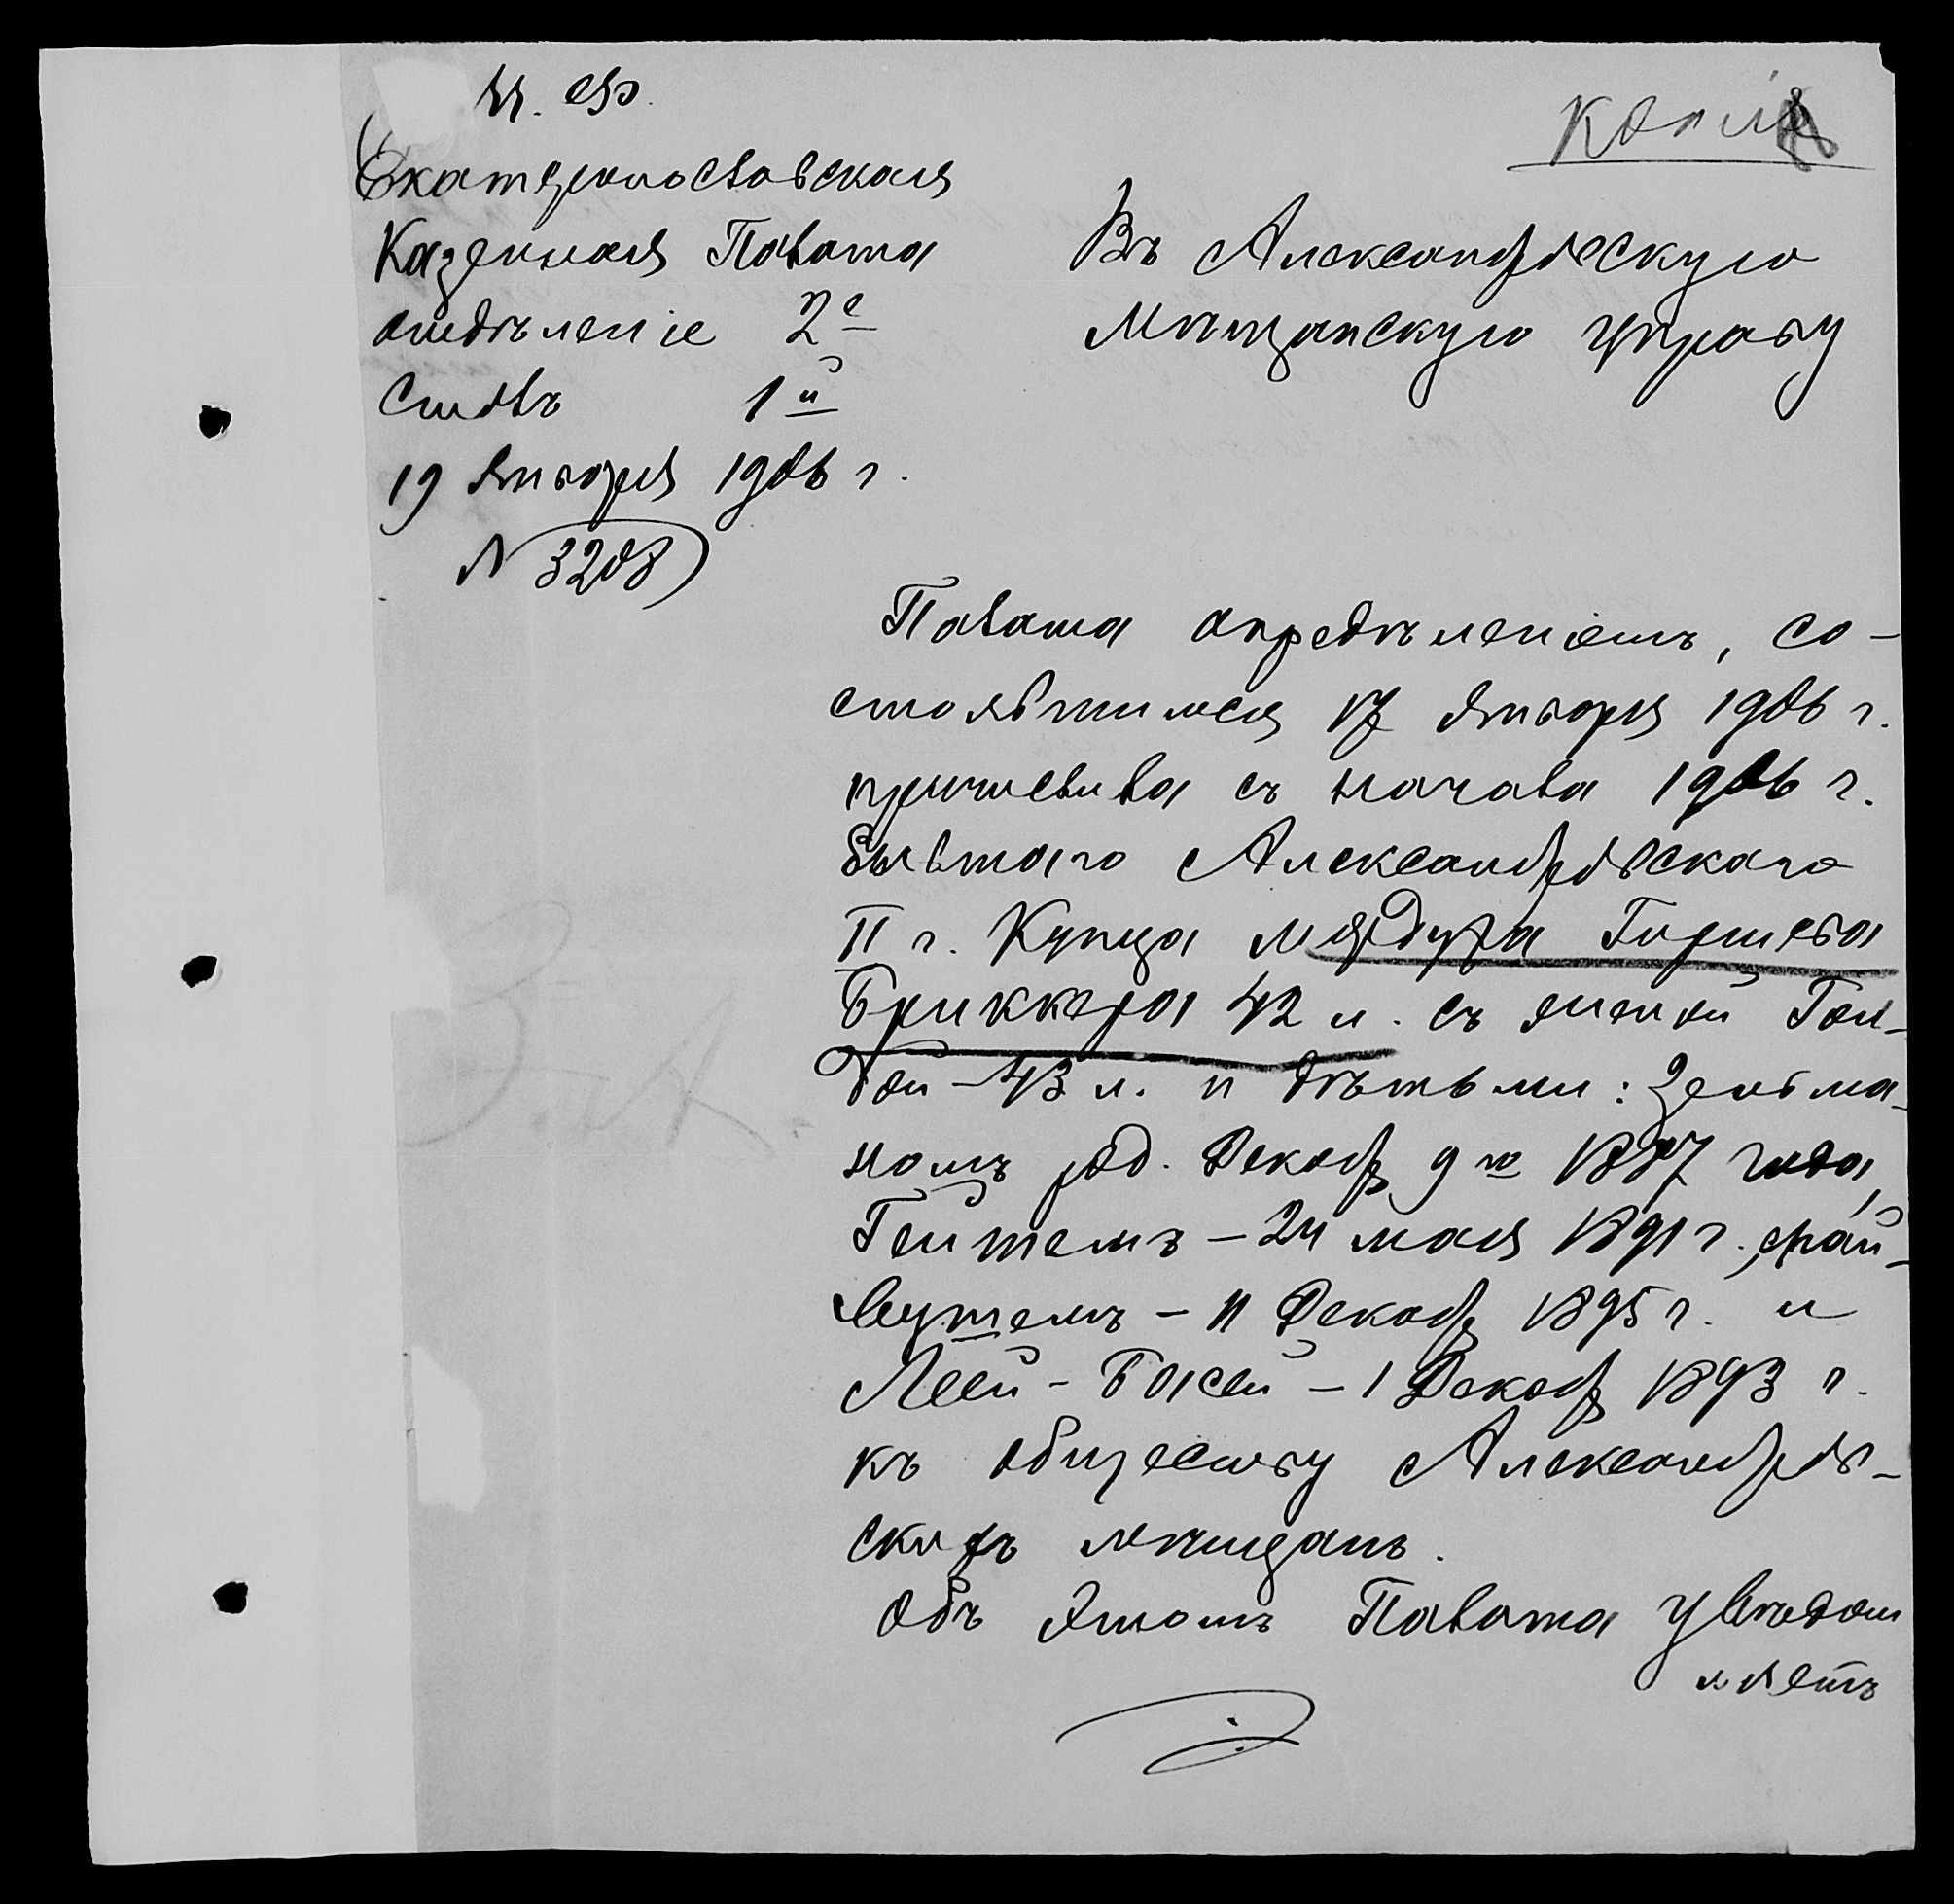 М. Ф.
Копія
Екатеринославская
Казенная Палата
отдѣленіе 2е
Столъ 1й
19 Января 1906 г.
№ 3208
Въ Александровскую
Мѣщанскую Управу
Палата опредѣленіемъ, со-
стоявшимся 17 Января 1906 г.
причислила съ начала 1906 г.
бывшаго Александровскаго
II г. Купца Мордуха Гиршева
Бриккера 42 л. съ женой Гол-
дой - 43 л. и дѣтьми: Зельма-
номъ род. Декабр 9го 1887 года,
Гейшемъ - 24 мая 1891 г., Фай-
вушемъ - 11 Декабр 1895 г. и
Леей - Басей - 1 Декабр 1893 г.
къ обществу Александров-
скихъ мѣщанъ.
Объ этомъ Палата увѣдом
ляетъ